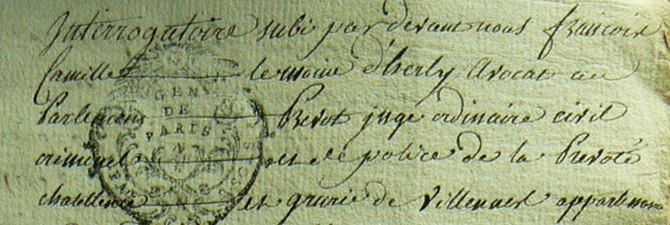 Interrogatoire subi par devant nous francois
Camille le moine d'herly Avocat au
Parlement Prevot juge ordinaire civil
criminel et de police de la Prevoté
chatellenie et grurie de Villeneuve appartenan
GENER
DE
PARIS